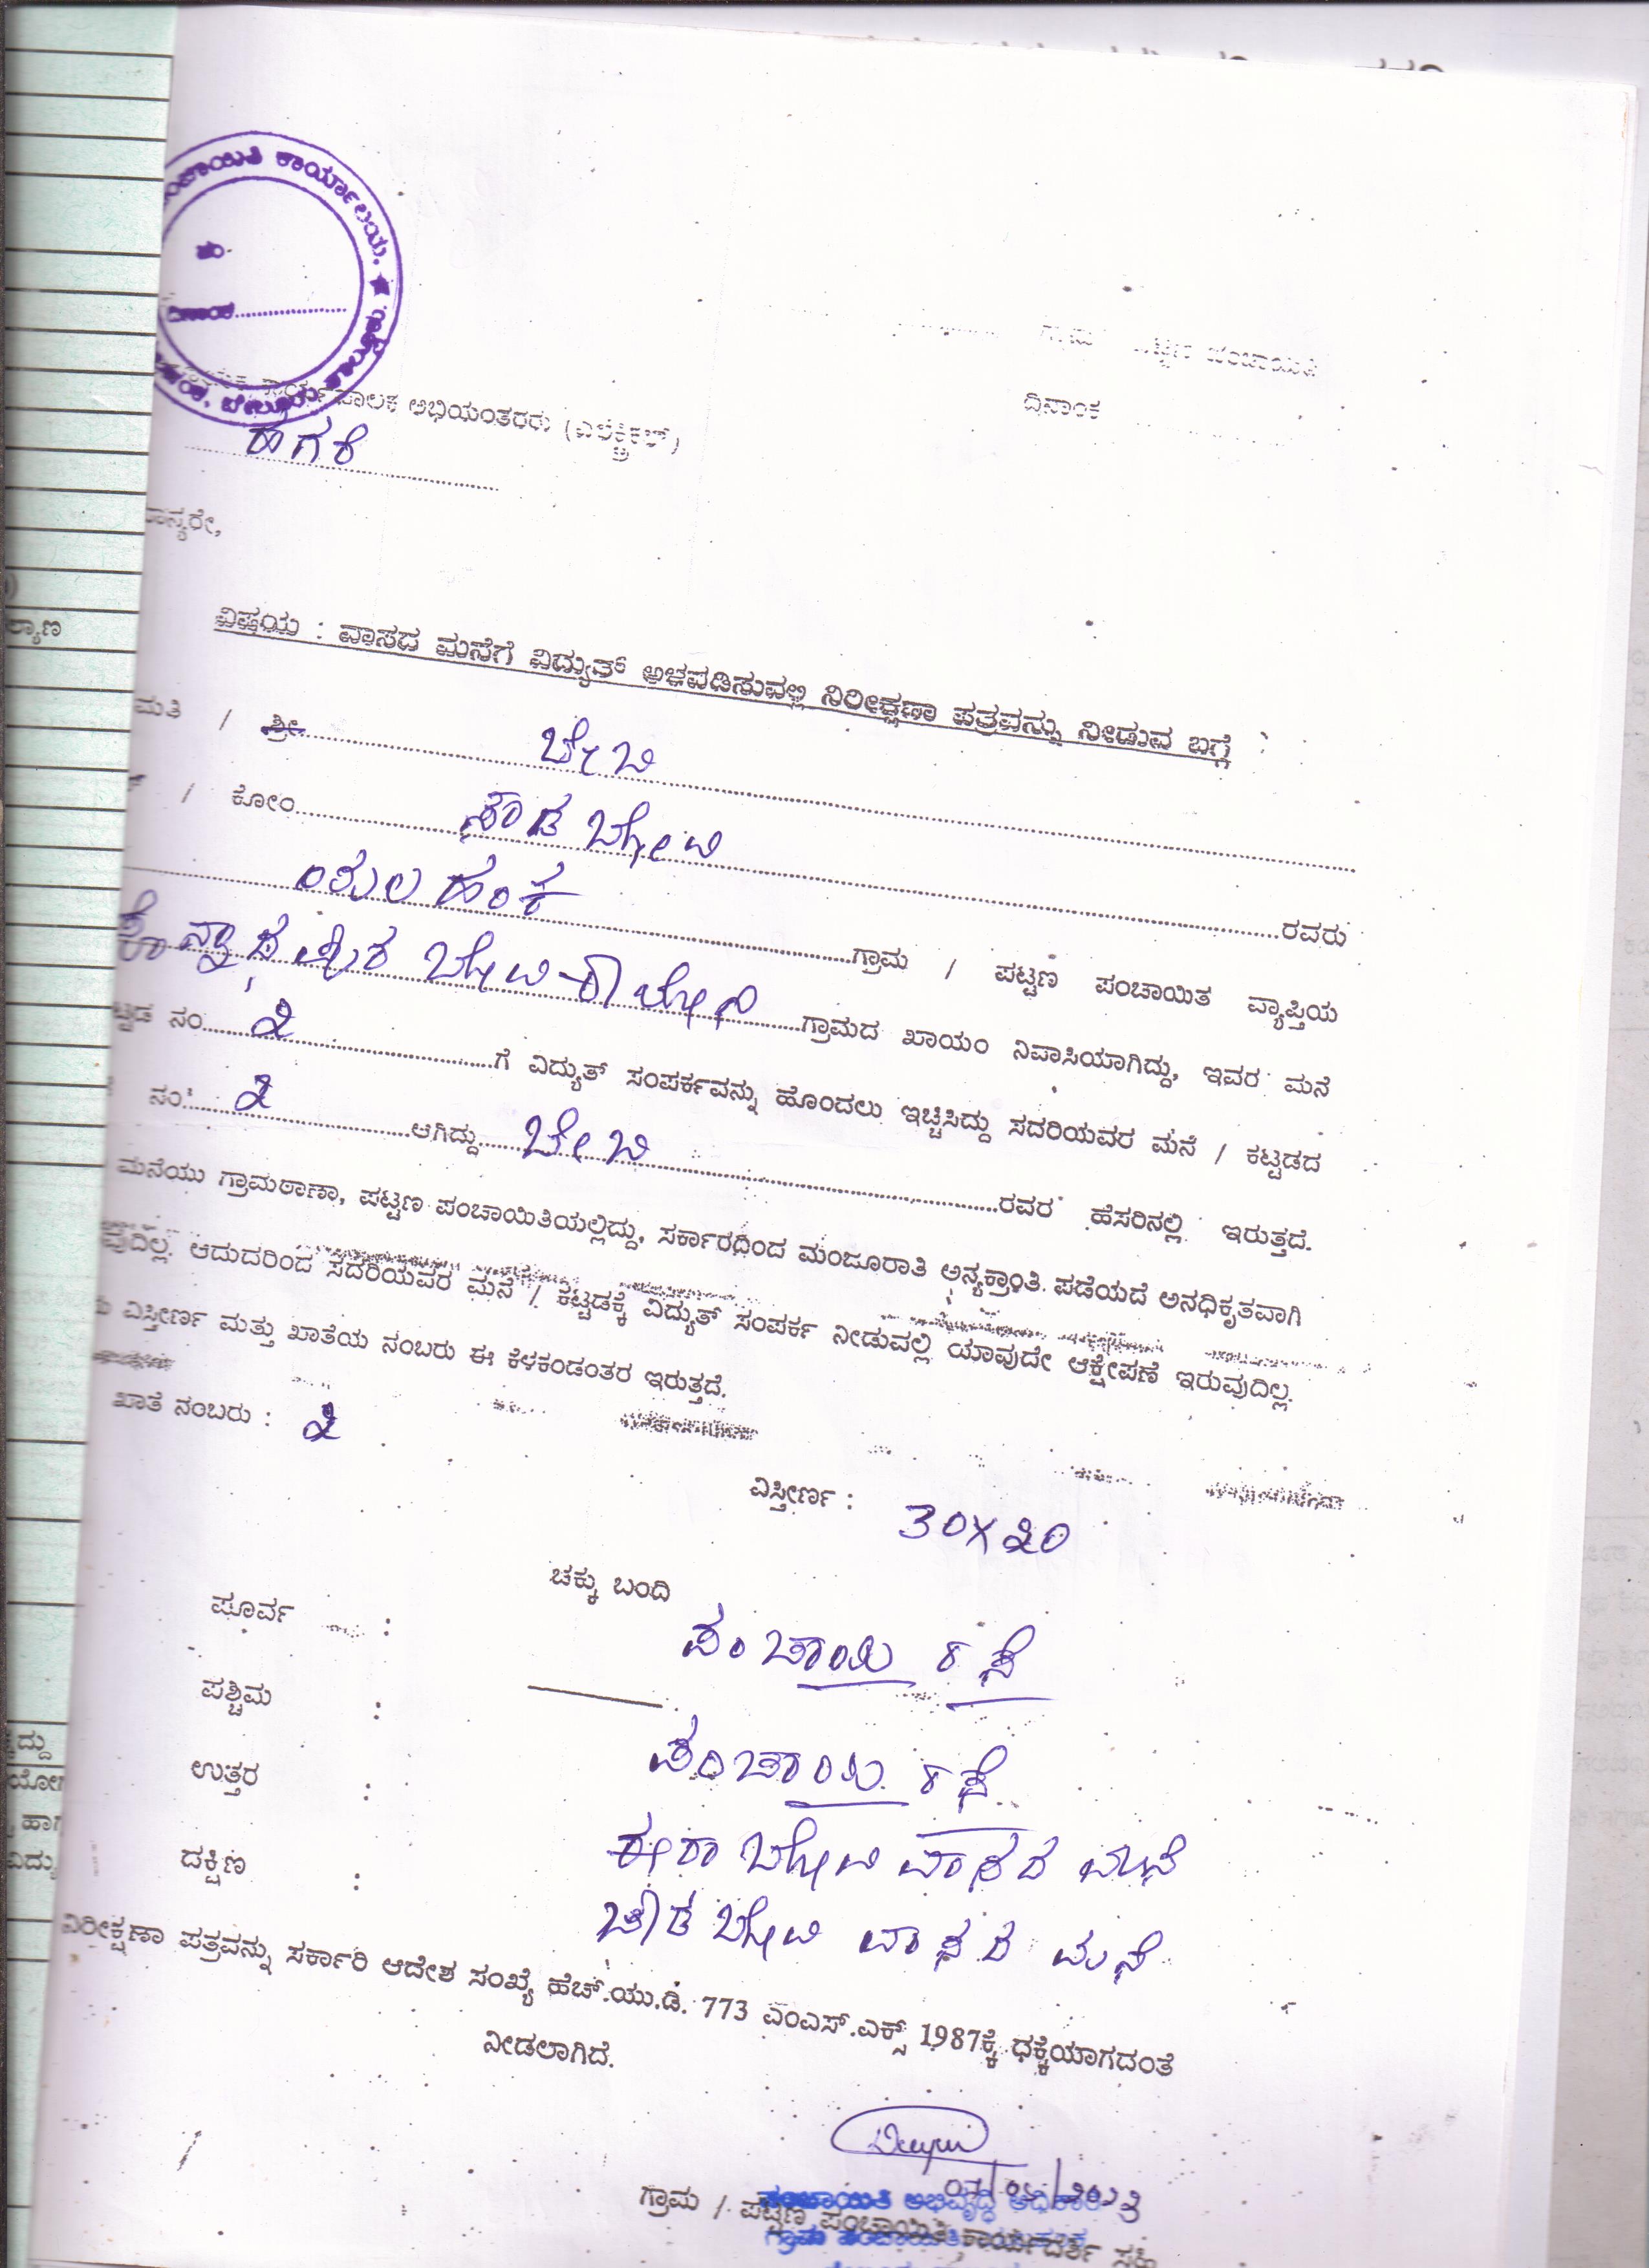 ಕಾರ್ಯಾಲಯ.
ದಿನಾಂಕ
ಪಂಚಾಯಿತಿ
ದಿನಾಂಕ
ಅಭಿಯಂತರರು (ಎಲೆಕ್ಟ್ರಿಕಲ್)
ಹಗರೆ
ವಿಷಯ : ವಾಸದ ಮನೆಗೆ ವಿದ್ಯುತ್ ಅಳವಡಿಸುವಲ್ಲಿ ನಿರೀಕ್ಷಣಾ ಪತ್ರವನ್ನು ನೀಡುವ ಬಗ್ಗೆ :
ಮತಿ / ಶ್ರೀ ಬೇಬಿ
/ ಕೋಂ ಬೋವಿ ರವರು
ಗ್ರಾಮ / ಪಟ್ಟಣ ಪಂಚಾಯಿತ ವ್ಯಾಪ್ತಿಯ
ಗ್ರಾಮದ ಖಾಯಂ ನಿವಾಸಿಯಾಗಿದ್ದು, ಇವರ ಮನೆ
ಟ್ಟಡ ನಂ 2 ಗೆ ವಿದ್ಯುತ್ ಸಂಪರ್ಕವನ್ನು ಹೊಂದಲು ಇಚ್ಚಿಸಿದ್ದು ಸದರಿಯವರ ಮನೆ / ಕಟ್ಟಡದ
ನಂ: 2 ಆಗಿದ್ದು ಬೇಬಿ ರವರ ಹೆಸರಿನಲ್ಲಿ ಇರುತ್ತದೆ.
ಮನೆಯು ಗ್ರಾಮಠಾಣಾ, ಪಟ್ಟಣ ಪಂಚಾಯಿತಿಯಲ್ಲಿದ್ದು, ಸರ್ಕಾರದಿಂದ ಮಂಜೂರಾತಿ ಅನ್ಯಕ್ರಾಂತಿ ಪಡೆಯದೆ ಅನಧಿಕೃತವಾಗಿ
ವುದಿಲ್ಲ. ಆದುದರಿಂದ ಸದರಿಯವರ ಮನೆ / ಕಟ್ಟಡಕ್ಕೆ ವಿದ್ಯುತ್ ಸಂಪರ್ಕ ನೀಡುವಲ್ಲಿ ಯಾವುದೇ ಆಕ್ಷೇಪಣೆ ಇರುವುದಿಲ್ಲ.
ವಿಸ್ತೀರ್ಣ ಮತ್ತು ಖಾತೆಯ ನಂಬರು ಈ ಕೆಳಕಂಡಂತರ ಇರುತ್ತದೆ.
ಖಾತೆ ನಂಬರು : 2
ವಿಸ್ತೀರ್ಣ : 30X20
ಚಕ್ಕು ಬಂದಿ
ಪೂರ್ವ : ಪಂಚಾಯಿ ರಸ್ತೆ
ಪಶ್ಚಿಮ : ಪಂಚಾಯಿ ರಸ್ತೆ
ಉತ್ತರ : ಈರಾ ಬೋವಿ ವಾಸದ ಮನೆ
ದಕ್ಷಿಣ : ಬೋವಿ ವಾಸದ ಮನೆ
ನಿರೀಕ್ಷಣಾ ಪತ್ರವನ್ನು ಸರ್ಕಾರಿ ಆದೇಶ ಸಂಖ್ಯೆ ಹೆಚ್.ಯು.ಡಿ. 773 ಎಂಎಸ್.ಎಕ್ಸ್ 1987ಕ್ಕೆ ಧಕ್ಕೆಯಾಗದಂತೆ
ನೀಡಲಾಗಿದೆ.
ಪಂಚಾಯಿತಿ ಅಭಿವೃದ್ಧಿ ಅಧಿಕಾರಿ
ಗ್ರಾಮ / ಪಟ್ಟಣ ಪಂಚಾಯಿತಿ ಕಾರ್ಯದರ್ಶಿ ಸಹಿ